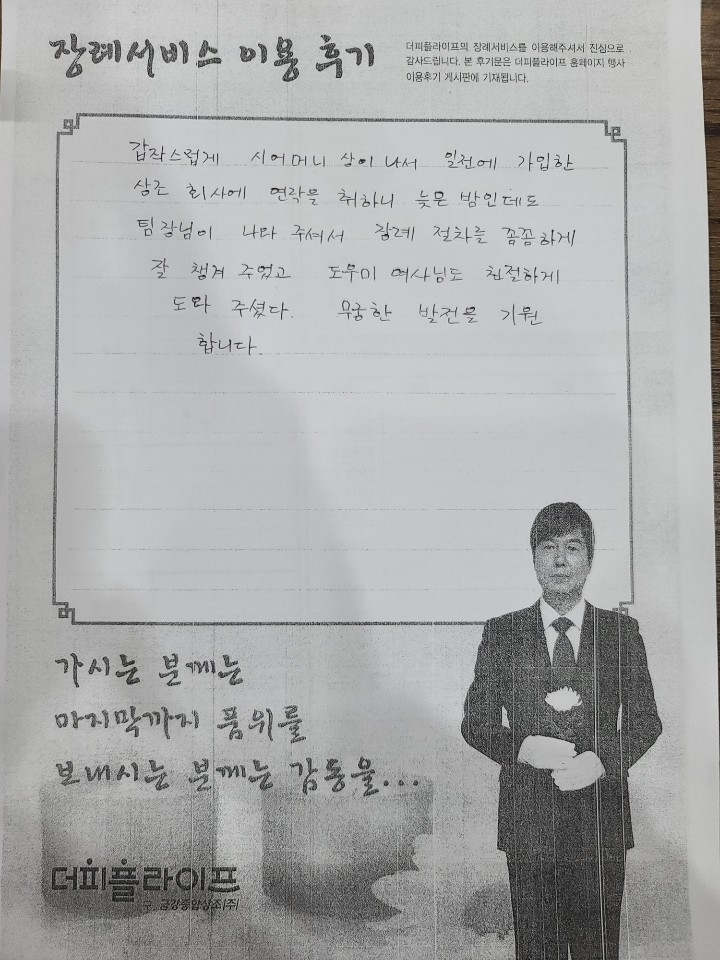 장례서비스 이용 후기
더피플라이프의 장례서비스를 이용해주셔서 진심으로
감사드립니다. 본 후기문은 더피플라이프 홈페이지 행사
이용후기 게시판에 기재됩니다.
갑작스럽게 시어머니 상이 나서 일전에 가입한
상조 회사에 연락을 취하니 늦은 밤인데도
팀장님이 나와 주셔서 장례 절차를 꼼꼼하게
잘 챙겨 주었고 도우미 여사님도 친절하게
도와 주셨다. 무궁한 발전을 기원
합니다.
가시는 분께는
마지막까지 품위를
보내시는 분께는 감동을...
더피플라이프
구. 금강종합상조(주)